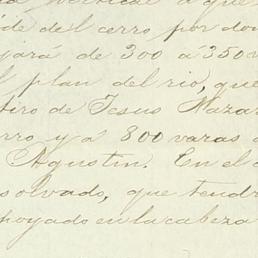 vertical a que
de del cerro por don
jará de 300 á 350 va
l plan del rio, que
tiro de Jesus Nazar
rro y á 800 varas d
Agustin. En el c
solvado, que tendr
apoyado en la cabeza